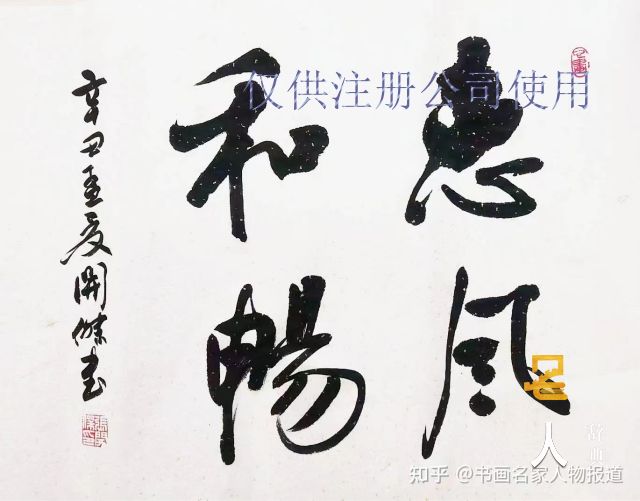 惠风
和暢
辛丑孟夏開書
仅供注册公司使用
名人
知乎 @书画名家人物报道